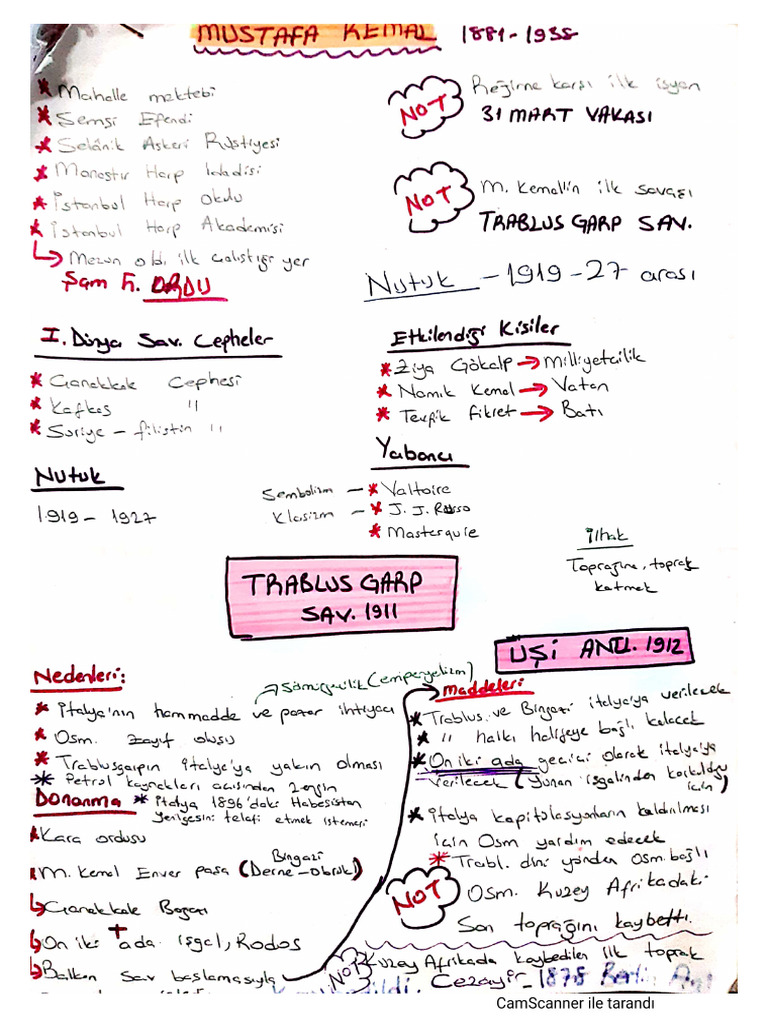 MUSTAFA KEMAL 1881-1938
* Mahalle mektebi
* Şemsi Efendi
* Selânik Askeri Rüştiyesi
* Manastır Harp İdadisi
* İstanbul Harp Okulu
* İstanbul Harp Akademisi
Mezun oldı ilk çalıştığı yer
Şam 5. ORDU
NOT Rejime karşı ilk isyan
31 MART VAKASI
NOT M. Kemal'in ilk savaşı
TRABLUS GARP SAV.
Nutuk - 1919-27 arası
I. Dünya Sav. Cepheler
* Çanakkale Cephesi
* Kafkas "
* Suriye - filistin "
Nutuk
1919-1927
Etkilendiği Kişiler
* Ziya Gökalp → Milliyetcilik
* Namık Kemal → Vatan
* Tevfik Fikret → Batı
Yabancı
Sembolizm - * Valtoire
Klasizm - * J. J. Russo
* Masterquie
İlhak
Toprağına, toprak
katmak
TRABLUS GARP
SAV. 1911
Nedenleri:
Sömürgecilik (emperyalizm)
* İtalya'nın hammadde ve pazar ihtiyacı
* Osm. Zayıf oluşu
* Trablusgarpın İtalya'ya yakın olması
* Petrol kaynakları açısından zengin
* İtalya 1896'daki Habeşistan
yenilgesini telafi etmek istemesi
Donanma
* Kara ordusu
* M. Kemal Enver paşa (Derne-Tobruk)
Bingazi
Çanakkale Boğazı
On iki ada işgal, Rodos
Balkan Sav başlamasıyla
UŞİ ANTL. 1912
Maddeleri
* Trablus ve Bingazi italya'ya verilecek
* " halkı halifeye bağlı kalacak
* On iki ada geçici olarak italya'ya
verilecek (Yunan işgalinden korkulduğu
için)
* İtalya kapitülasyonların kaldırılması
için Osm yardım edecek
* Trabl. dini yönden Osm. bağlı
NOT Osm. Kuzey Afrikadaki
Son toprağını kaybetti.
NOT Kuzey Afrikada kaybedilen ilk toprak
Cezayir - 1878 Berlin Ant
CamScanner ile tarandı